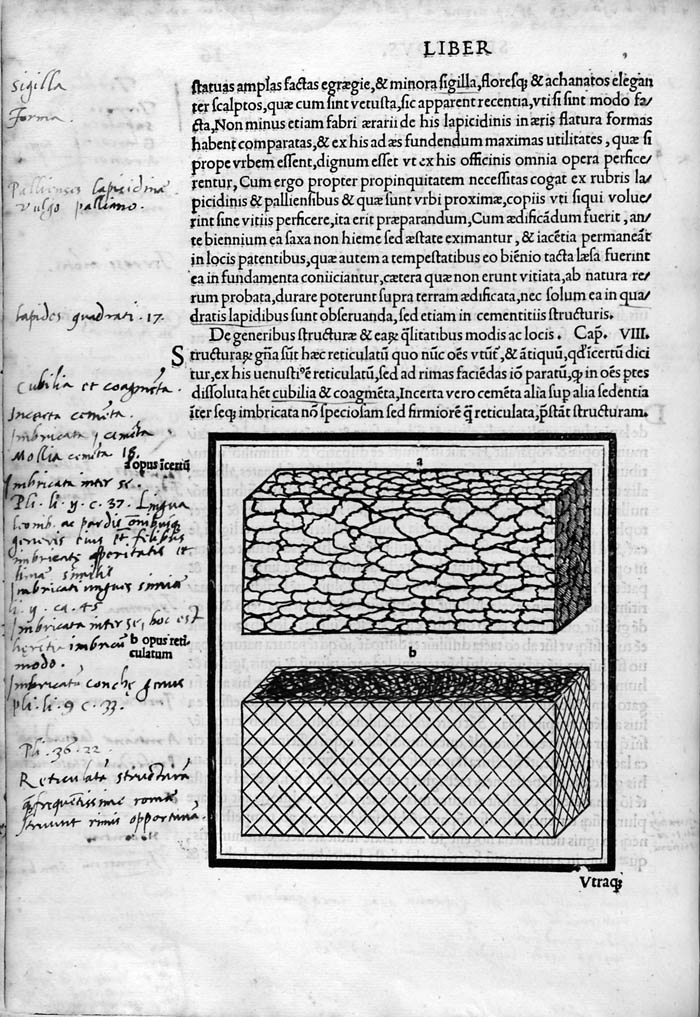 LIBER
ſtatuas amplas factas egrægie, & minora sigilla, floresq; & achanatos elegan
ter ſcalptos, quæ cum ſint vetuſta, ſic apparent recentia, vti ſi ſint modo fa/
cta, Non minus etiam fabri ærarii de his lapicidinis in æris flatura formas
habent comparatas, & ex his ad æs fundendum maximas vtilitates, quæ ſi
prope vrbem eſſent, dignum eſſet vt ex his officinis omnia opera perfice/
rentur, Cum ergo propter propinquitatem neceſſitas cogat ex rubris la/
picidinis & pallienſibus & quæ ſunt vrbi proximæ, copiis vti ſiqui volue/
rint ſine vitiis perficere, ita erit præparandum, Cum ædificādum fuerit, an/
te biennium ea ſaxa non hieme ſed æſtate eximantur, & iacētia permaneāt
in locis patentibus, quæ autem a tempeſtatibus eo biēnio tacta læſa fuerint
ea in fundamenta coniiciantur, cætera quæ non erunt vitiata, ab natura re/
rum probata, durare poterunt ſupra terram ædificata, nec ſolum ea in qua/
dratis lapidibus ſunt obſeruanda, ſed etiam in cementitiis ſtructuris.
De generibus ſtructuræ & eaꝝ q̄litatibus modis ac locis. Cap. VIII.
Structuraꝝ gña ſūt hæc reticulatū quo nūc oēs vtūt, & ātiquū, qd̓ īcertū dici
tur, ex his uenuſti᷒ ē reticulatū, ſed ad rimas faciēdas iō paratū, ꝙ in oēs ptes
diſſoluta hēt cubilia & coagmēta, Incerta vero cemēta alia ſup alia ſedentia
īter ſeq; imbricata nō ſpecioſam ſed firmiorē q̄ reticulata, p̄ſtāt ſtructuram.
sigilla
Forma.
Pallienses lapicidinæ
vulgo palliano.
Lapides quadrati. 17.
Cubilia et coagmēta.
Incerta cemēta.
Imbricata cemēta
Mollia cemēta 18.
a opus īcertū
Imbricata inter se.
Pli. li. 9. c. 37. Lingua
leonib. ac pardis omībusq;
generis eius et felibus
imbricate asperitatis et
limæ similis
Imbricati ungues simiæ
li. 9. ca. 45
Imbricata inter se, hoc est
imbricum
b opus reti/
culatum
modo.
Imbricatū conchę genus
pli. li. 9 c. 33.
Pli. 36. 22.
Reticulatā structurā
q̄ frequētissime romæ
struunt rimis opportunā.
a
b
Vtraq;